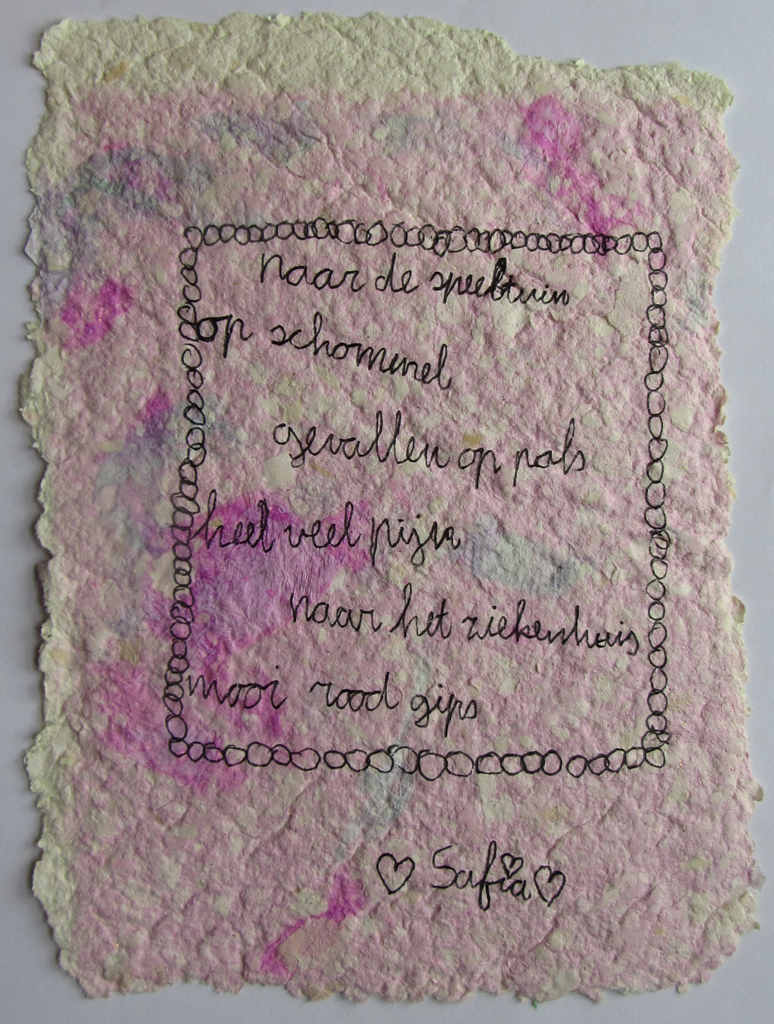 naar de speeltuin
op schommel
gevallen op pols
heel veel pijn
naar het ziekenhuis
mooi rood gips
♡ Safia ♡